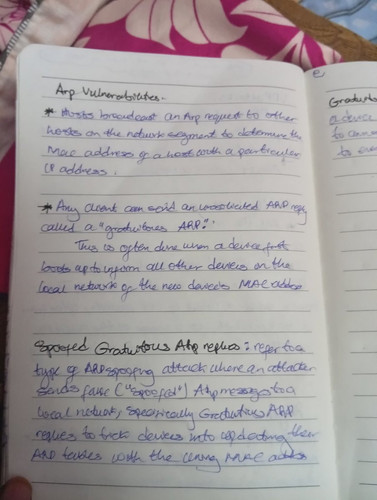 Arp Vulnerabilities.
* Hosts broadcast an Arp request to other
hosts on the network segment to determine the
MAC address of a host with a particular
IP address.
* Any client can send an unsolicited ARP reply
called a "gratuitous ARP."
This is often done when a device first
boots up to inform all other devices on the
local network of the new device's MAC address
Spoofed Gratuitous Arp replies: refer to a
type of ARP spoofing attack where an attacker
sends false ("spoofed") Arp messages to a
local network, specifically Gratuitous ARP
replies to trick devices into updating their
ARP tables with the wrong MAC address
e
a device